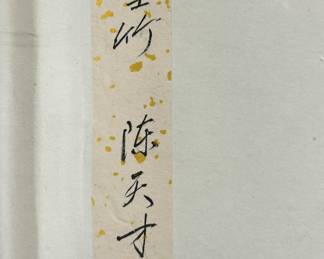 竹 陈天才